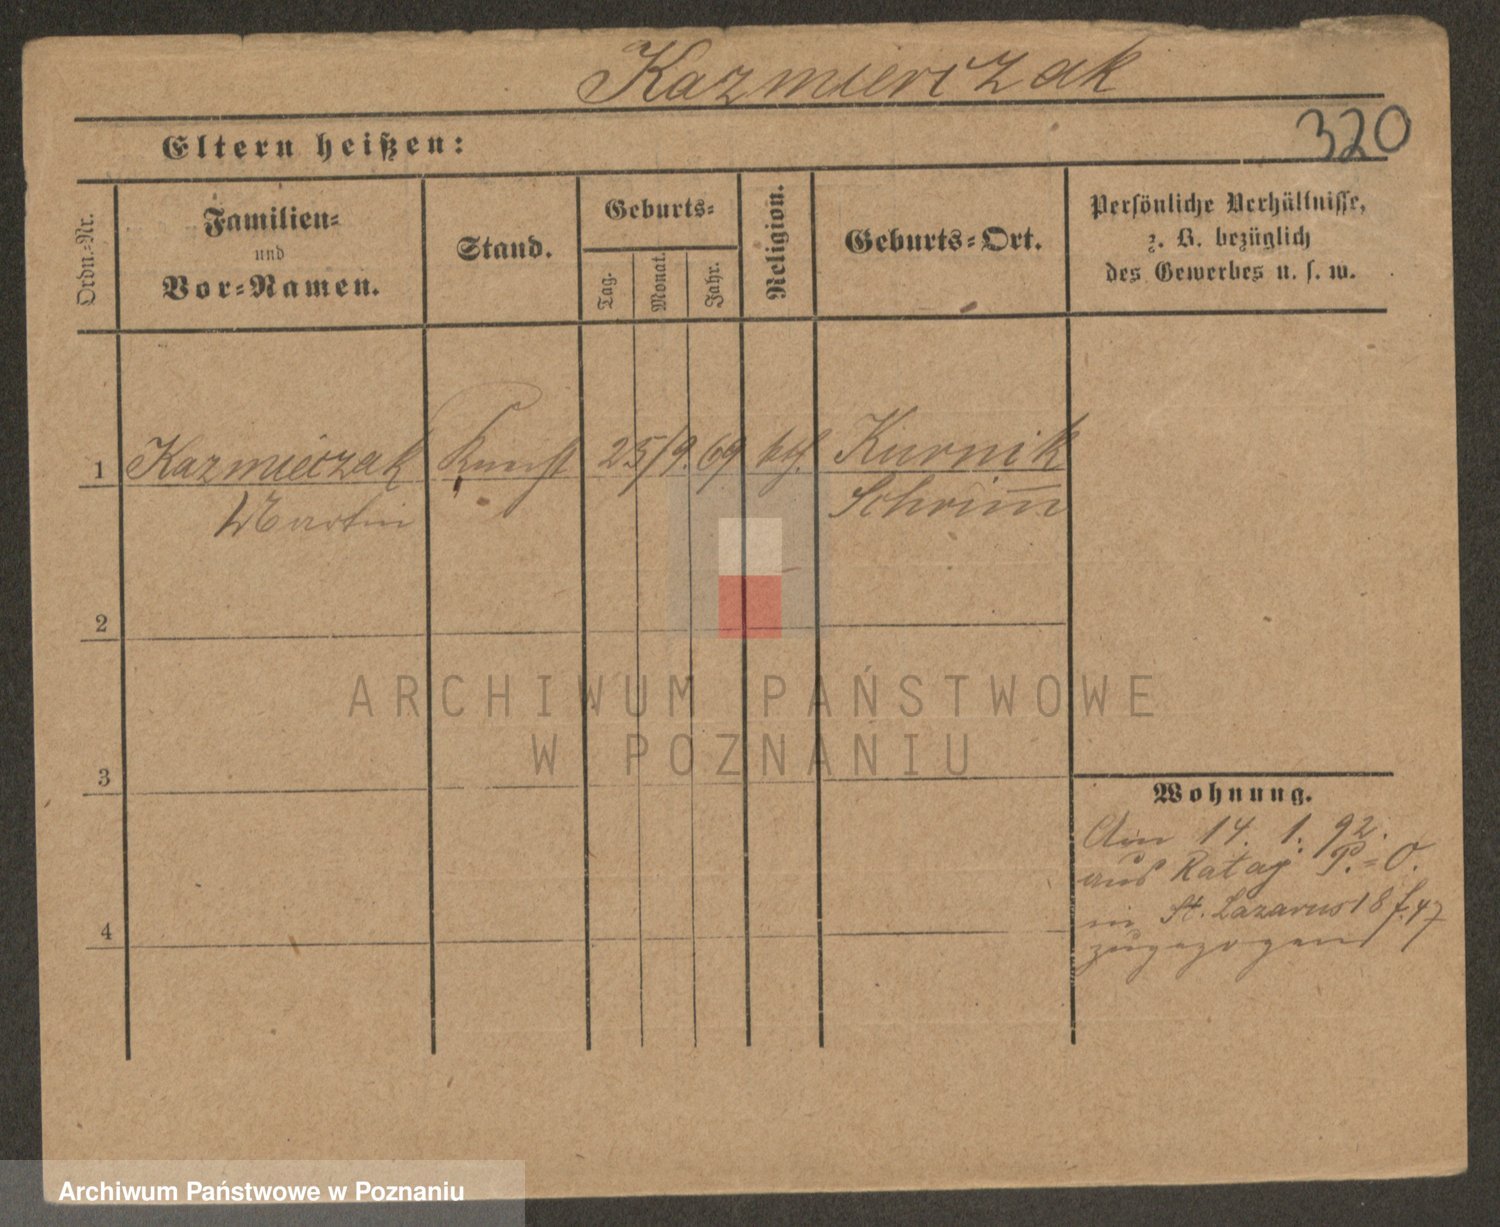 Kazmierczak
320
Eltern heißen:
Ordn.-Nr.
Familien-
und
Vor-Namen.
Stand.
Geburts-
Tag.
Monat.
Jahr.
Religion.
Geburts-Ort.
Persönliche Verhältnisse,
z. B. bezüglich
des Gewerbes u. s. w.
1 Kazmierczak Knecht 25/9. 69 kth. Kurnik
Martin Schrim̅
2
3
4
Wohnung.
Am 14. 1. 92.
aus Rataj P.=O.
in St. Lazarus 18 f. 47
zugezogen
ARCHIWUM PAŃSTWOWE
W POZNANIU
Archiwum Państwowe w Poznaniu